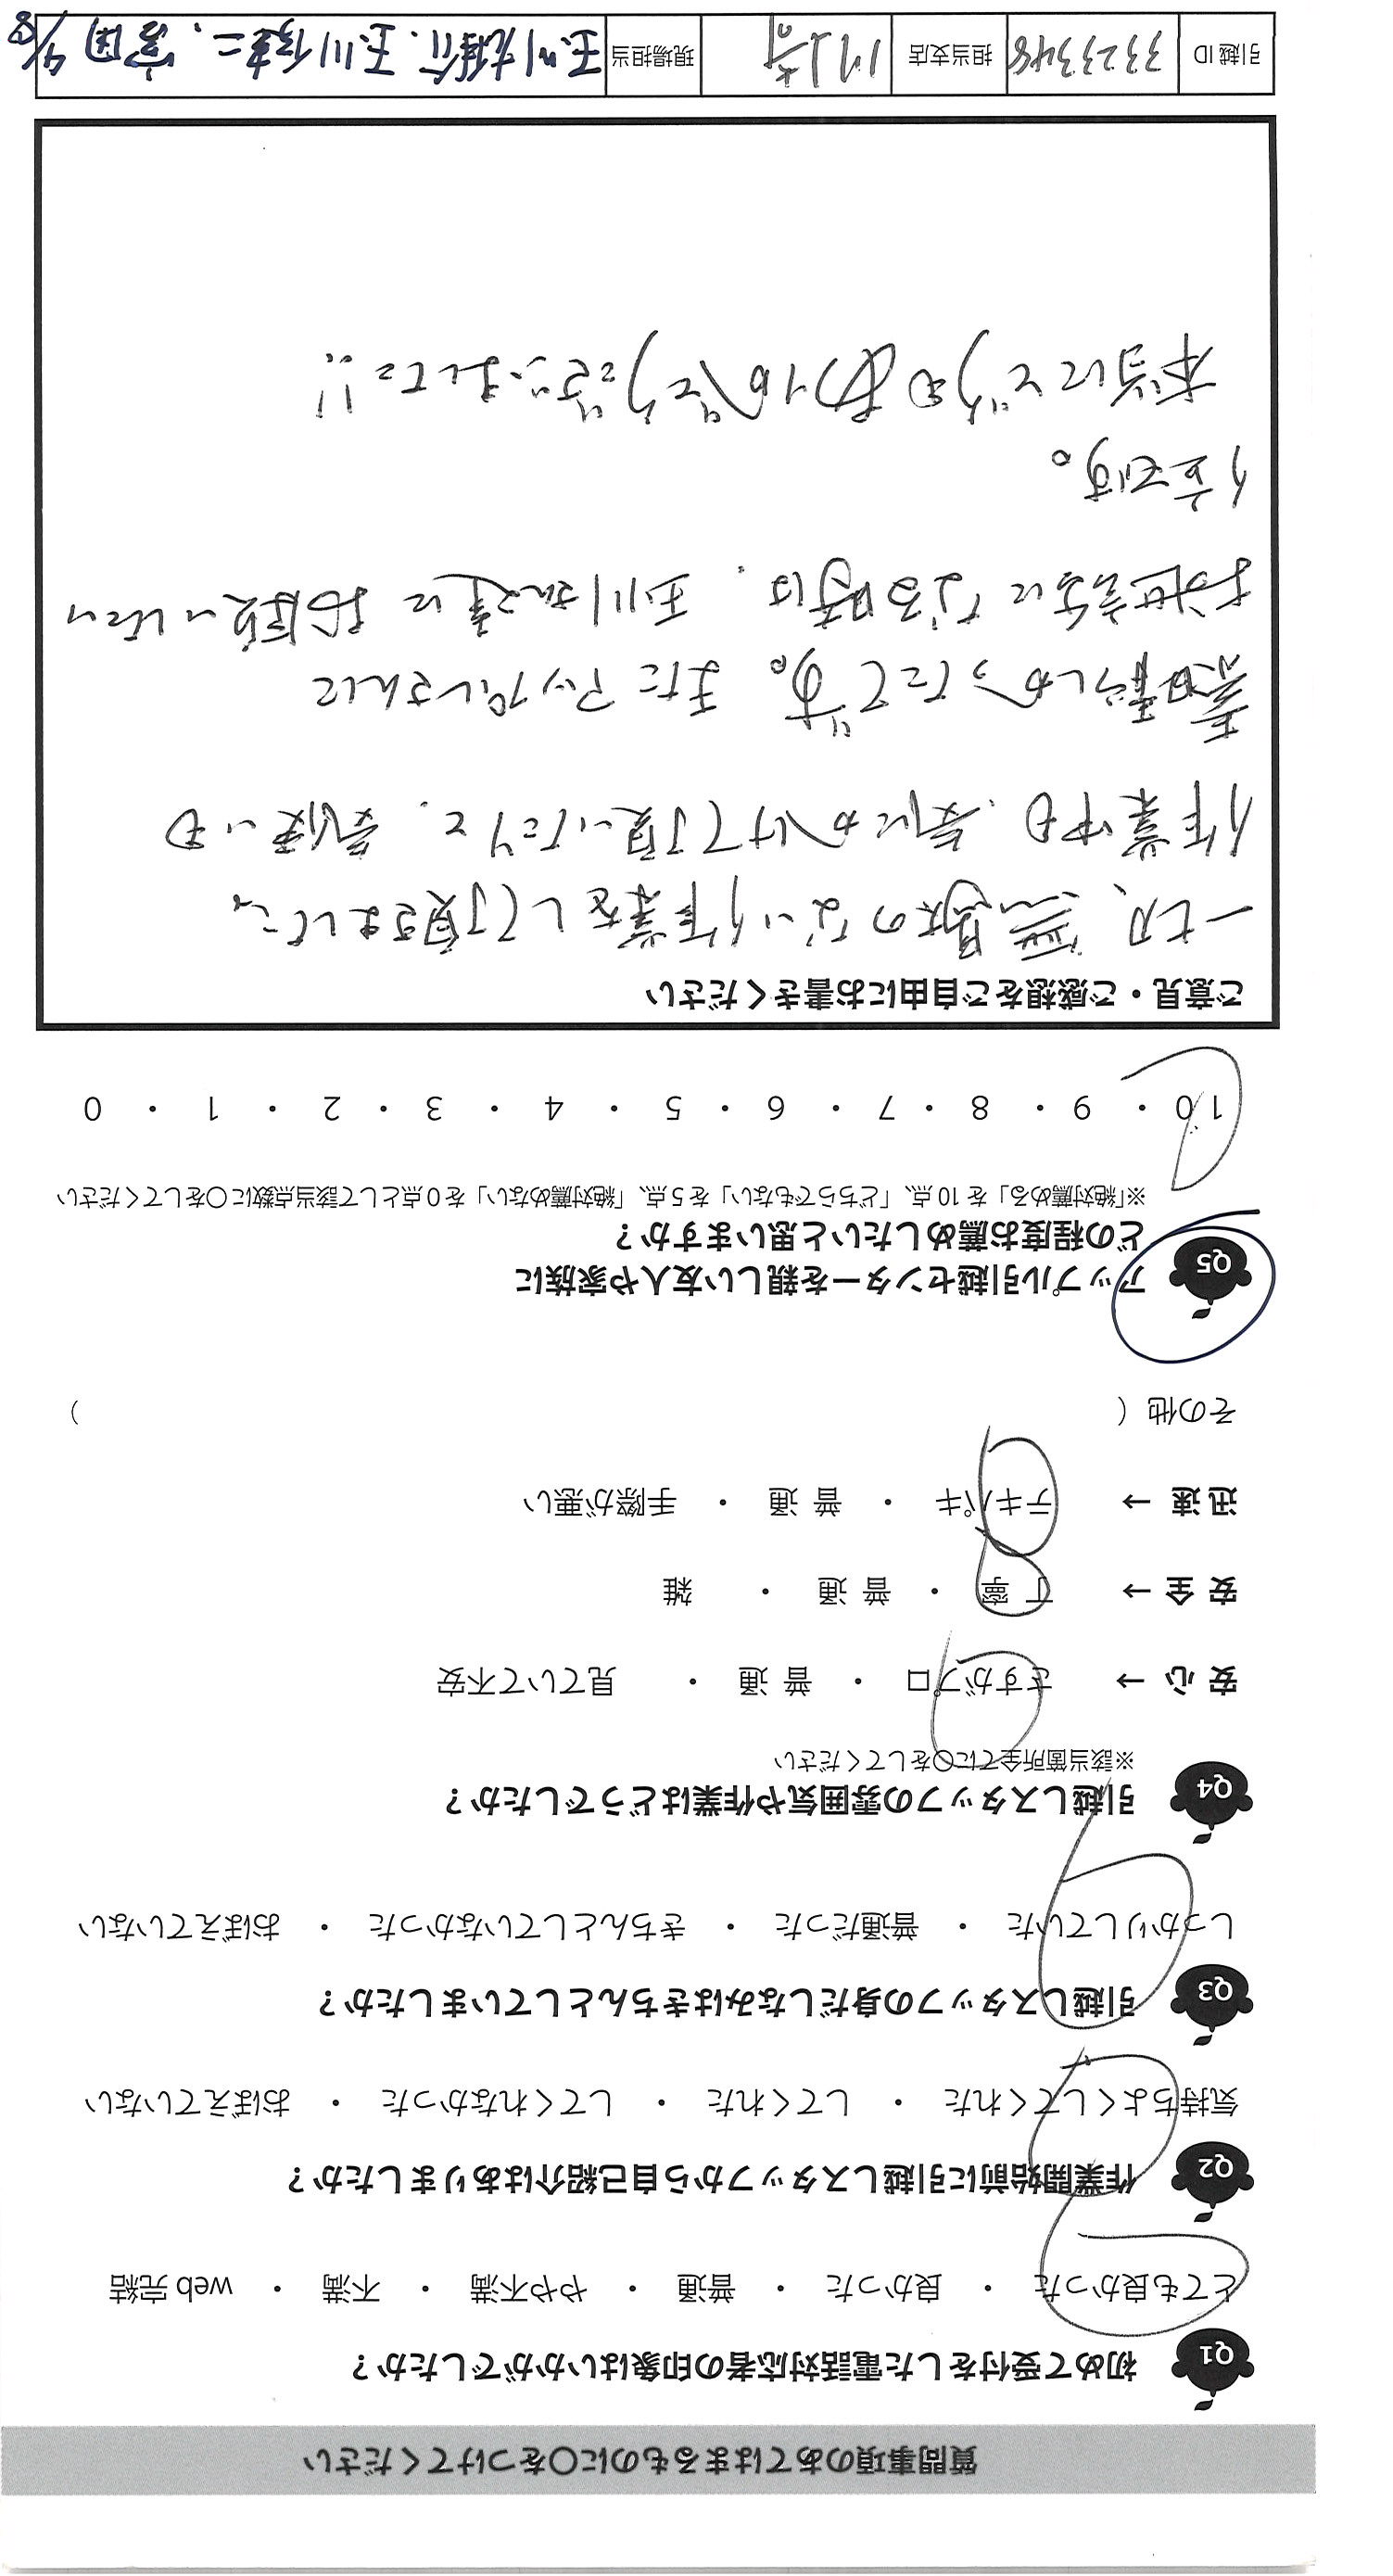 質問事項のあてはまるものに〇をつけてください
Q1 初めて受付をした電話対応者の印象はいかがでしたか？
とても良かった ・ 良かった ・ 普通 ・ やや不満 ・ 不満 ・ web 完結
Q2 作業開始前に引越しスタッフから自己紹介はありましたか？
気持ちよくしてくれた ・ してくれた ・ してくれなかった ・ おぼえていない
Q3 引越しスタッフの身だしなみはきちんとしていましたか？
しっかりしていた ・ 普通だった ・ きちんとしていなかった ・ おぼえていない
Q4 引越しスタッフの雰囲気や作業はどうでしたか？
※該当箇所全てに〇をしてください
安 心 → さすがプロ ・ 普 通 ・ 見ていて不安
安 全 → 丁 寧 ・ 普 通 ・ 雑
迅 速 → テキパキ ・ 普 通 ・ 手際が悪い
その他（ ）
Q5 アップル引越センターを親しい友人や家族に
どの程度お薦めしたいと思いますか？
※「絶対薦める」を 10 点、「どちらでもない」を 5 点、「絶対薦めない」を 0 点として該当点数に〇をしてください
10 ・ 9 ・ 8 ・ 7 ・ 6 ・ 5 ・ 4 ・ 3 ・ 2 ・ 1 ・ 0
ご意見・ご感想をご自由にお書きください
一切、無駄のない作業をして頂きまして、
作業中も、気にかけて頂いたりと、気使いも
素晴らしかったです。またアップルさんに
お世話になる時は、玉川さん達にお願いしたい
位です。
本当にどうもありがとうございました!!
引越 ID 3323348 担当支店 川崎 現場担当 玉川 玉川 富岡 4/18